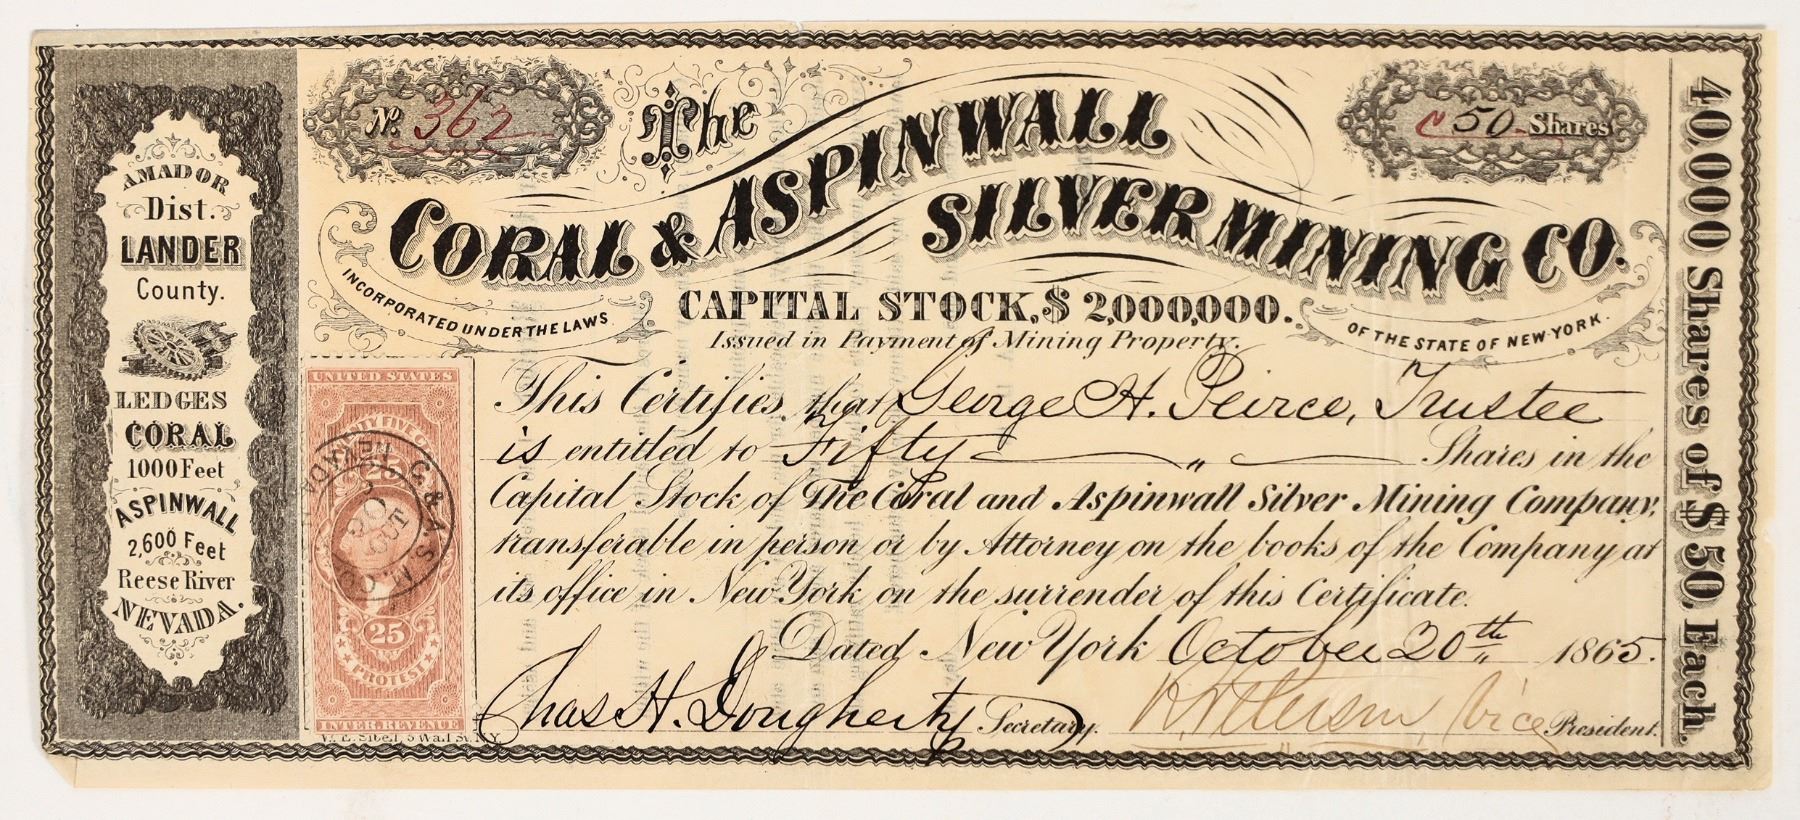 AMADOR
Dist.
LANDER
County.
LEDGES
CORAL
1000 Feet
ASPINWALL
2,600 Feet
Reese River
NEVADA.
No. 362
50 Shares
The
CORAL & ASPINWALL
SILVER MINING CO.
INCORPORATED UNDER THE LAWS
OF THE STATE OF NEW-YORK.
CAPITAL STOCK, $ 2,000,000.
Issued in Payment of Mining Property.
This Certifies, that George H. Peirce, Trustee
is entitled to Fifty " Shares in the
Capital Stock of The Coral and Aspinwall Silver Mining Company,
transferable in person or by Attorney on the books of the Company at
its office in New York on the surrender of this Certificate.
Dated New York October 20th 1865.
Chas H. Dougherty Secretary.
Vice President.
40,000 Shares of $50, Each.
UNITED STATES
25
25
PROTEST
INTER. REVENUE
C. & A. S. M. CO.
NEVADA
20
OCT